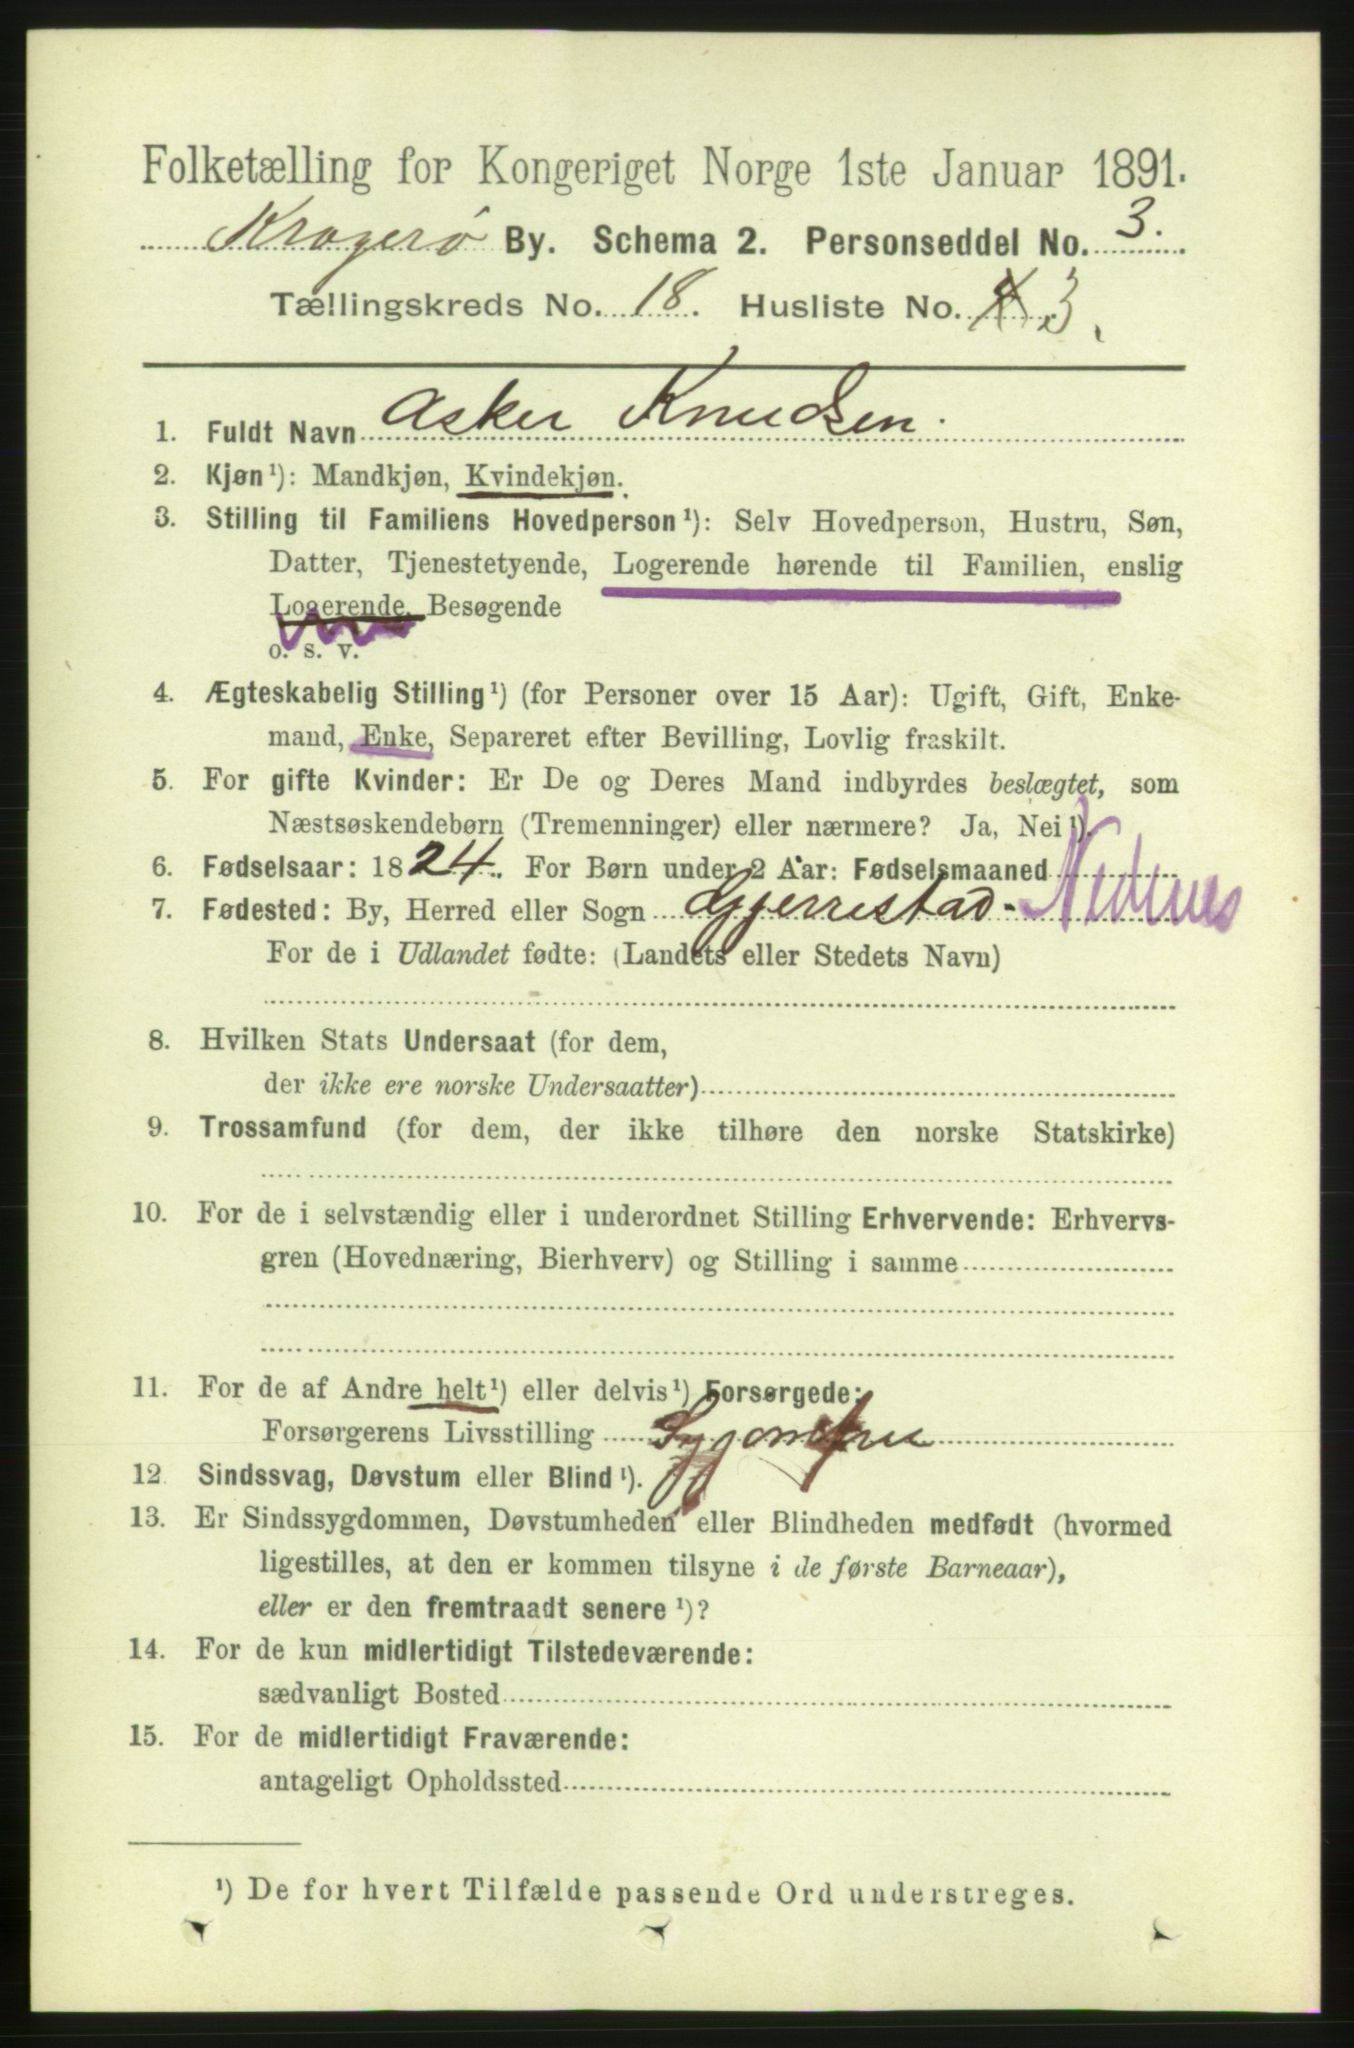 Folketælling for Kongeriget Norge 1ste Januar 1891.
Kragerö By. Schema 2. Personseddel No. 3.
Tællingskreds No. 18. Husliste No. 3.
1. Fuldt Navn Asker Knudsen.
2. Kjøn¹): Mandkjøn, Kvindekjøn.
3. Stilling til Familiens Hovedperson¹): Selv Hovedperson, Hustru, Søn,
Datter, Tjenestetyende, Logerende hørende til Familien, enslig
Logerende, Besøgende
o. s. v.
4. Ægteskabelig Stilling¹) (for Personer over 15 Aar): Ugift, Gift, Enke-
mand, Enke, Separeret efter Bevilling, Lovlig fraskilt.
5. For gifte Kvinder: Er De og Deres Mand indbyrdes beslægtet, som
Næstsøskendebørn (Tremenninger) eller nærmere? Ja, Nei¹).
6. Fødselsaar: 1824. For Børn under 2 Aar: Fødselsmaaned
7. Fødested: By, Herred eller Sogn Gjerrestad - Nedenes
For de i Udlandet fødte: (Landets eller Stedets Navn)
8. Hvilken Stats Undersaat (for dem,
der ikke ere norske Undersaatter)
9. Trossamfund (for dem, der ikke tilhøre den norske Statskirke)
10. For de i selvstændig eller i underordnet Stilling Erhvervende: Erhvervs-
gren (Hovednæring, Bierhverv) og Stilling i samme
11. For de af Andre helt¹) eller delvis¹) Forsørgede:
Forsørgerens Livsstilling
12 Sindssvag, Døvstum eller Blind¹).
13. Er Sindssygdommen, Døvstumheden eller Blindheden medfødt (hvormed
ligestilles, at den er kommen tilsyne i de første Barneaar),
eller er den fremtraadt senere¹)?
14. For de kun midlertidigt Tilstedeværende:
sædvanligt Bosted
15. For de midlertidigt Fraværende:
antageligt Opholdssted
¹) De for hvert Tilfælde passende Ord understreges.